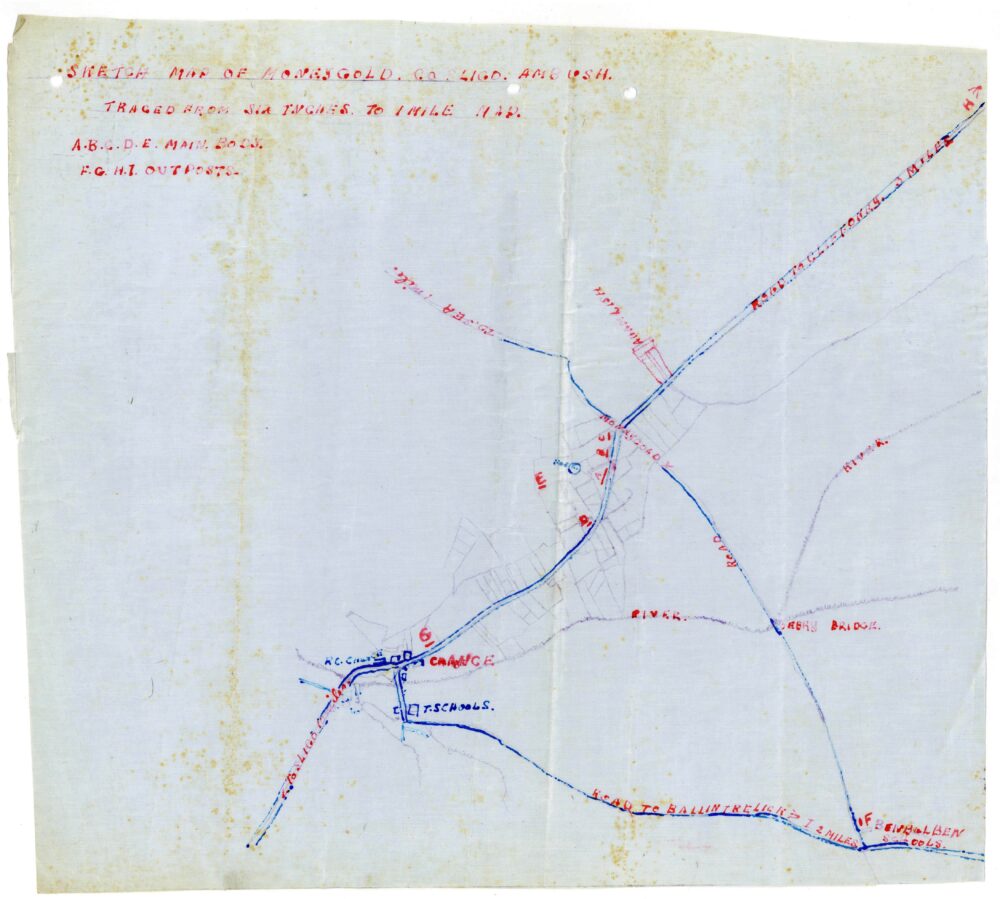 SKETCH MAP OF MONEYGOLD. CO SLIGO. AMBUSH.
TRACED FROM SIX INCHES. TO 1 MILE MAP.
A.B.C.D.E. MAIN. BODY.
F.G.H.I. OUTPOSTS.
H
ROAD TO CLIFFONEY. 3 MILES
TO SEA 1 mile.
MONEYGOLD X
RIVER.
E
B
ROAD
RIVER.
BRIDGE.
G
R.C. CHURCH
GRANGE
T. SCHOOLS.
TO SLIGO
ROAD TO BALLINTRELICK
MILES
F
BENBULBEN
SCHOOLS.